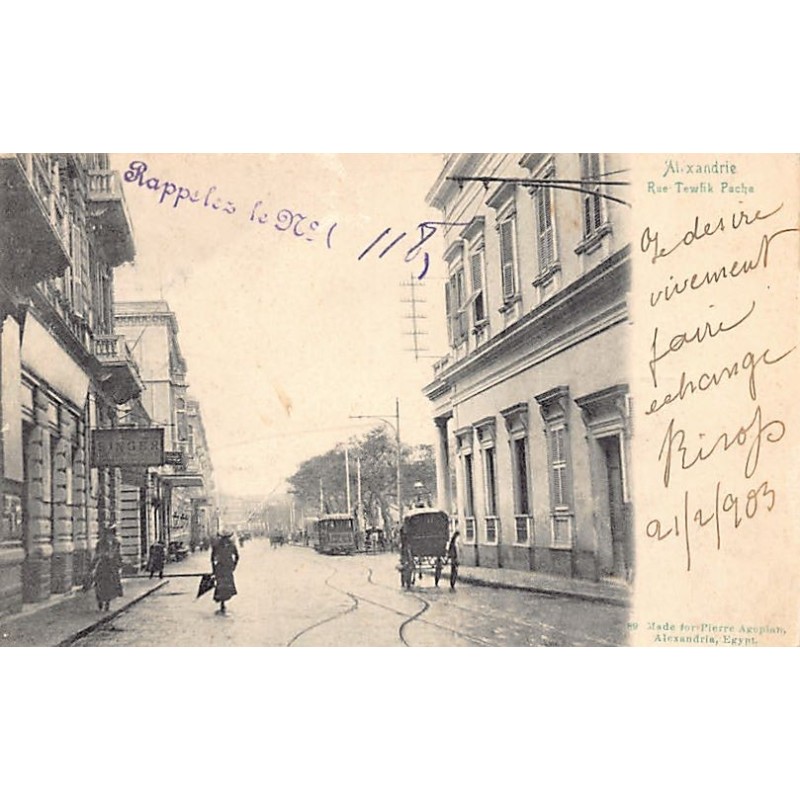 Rappelez le No. 118
Alexandrie
Rue Tewfik Pacha
Je desire
vivement
faire
echange
21/2/903
SINGER
89 Made for Pierre Agopian,
Alexandria, Egypt.